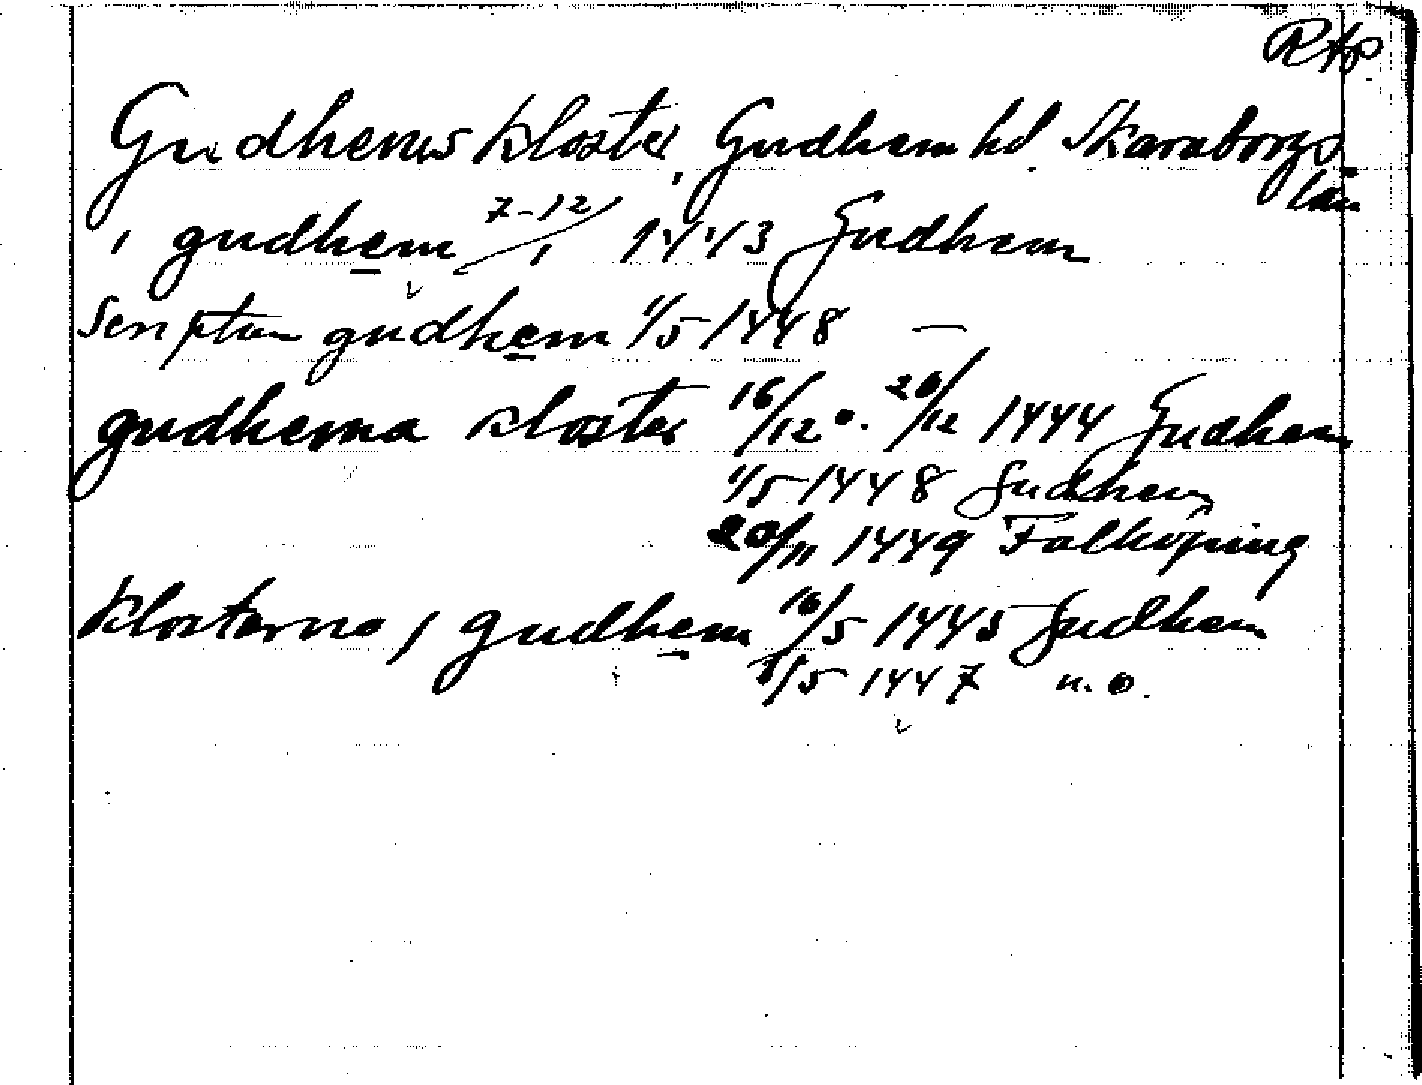 RAp
Gudhems kloster, Gudhem hd. Skaraborgs
län
i gudhem 7-12/1 1443 Gudhem
Scriptum gudhem 1/5 1448 —
gudhema kloster 16/12 o. 20/12 1444 Gudhem
1/5 1448 Gudhem
20/11 1449 Falköping
klosterno i gudhem 16/5 1445 Gudhem
1/5 1447 u.o.